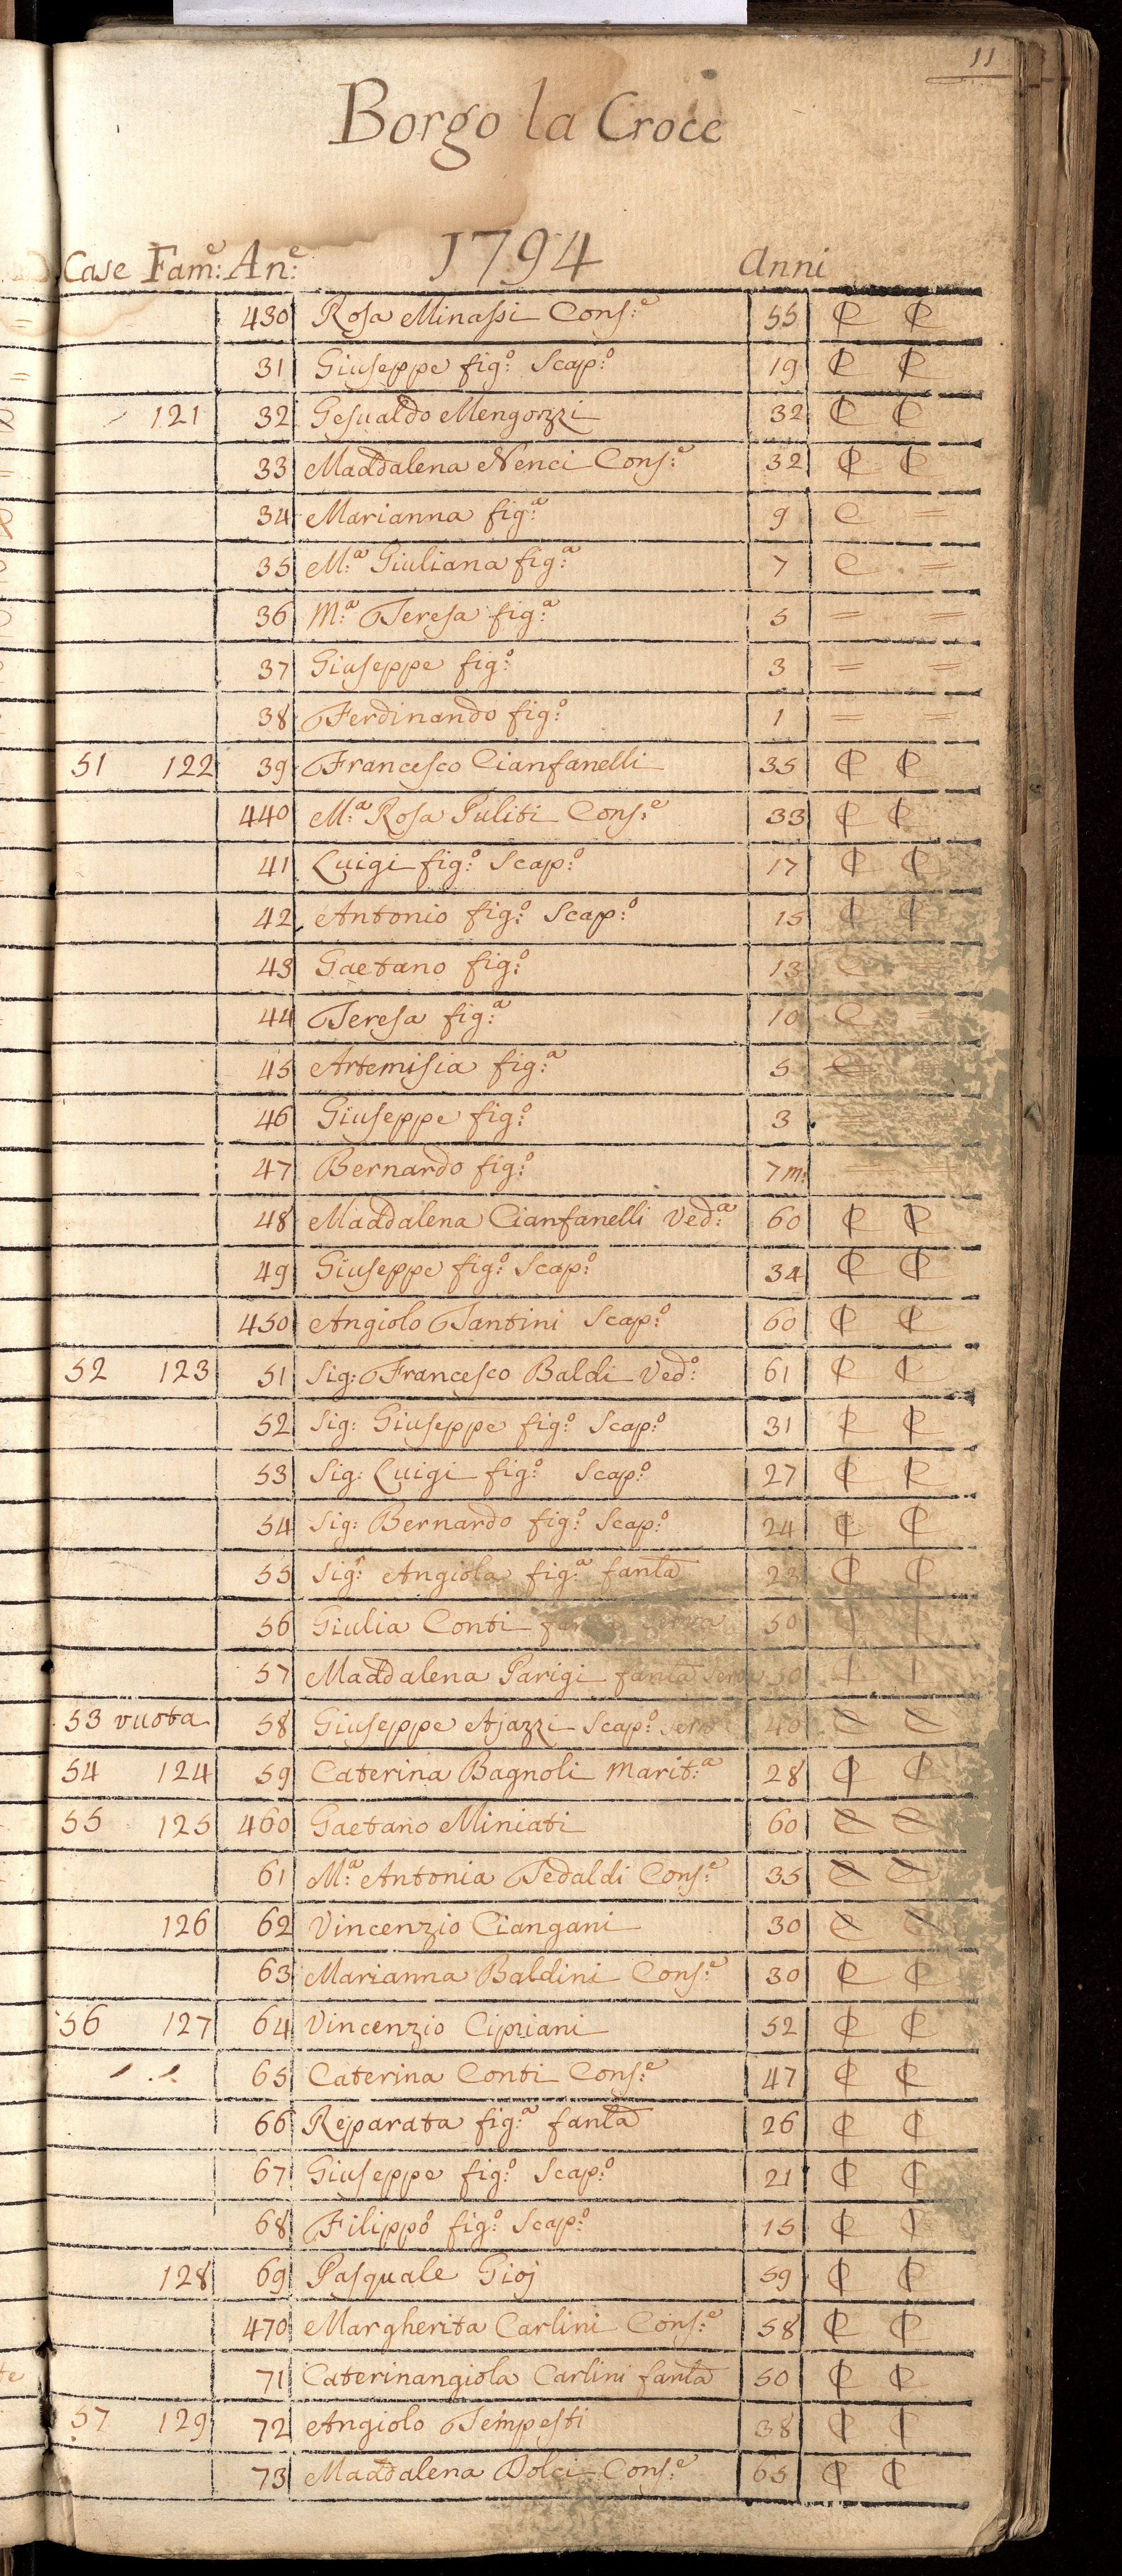 11
Borgo la Croce
Case Fam:e An:e 1794 Anni
430 Rosa Minassi Cons:e 55 C C
31 Giuseppe fig:o Scap:o 19 C C
121 32 Gesualdo Mengozzi 32 C C
33 Maddalena Nenci Cons:e 32 C C
34 Marianna fig:a 9 C =
35 M:a Giuliana fig:a 7 C =
36 M:a Teresa fig:a 5 = =
37 Giuseppe fig:o 3 = =
38 Ferdinando fig:o 1 = =
51 122 39 Francesco Cianfanelli 35 C C
440 M:a Rosa Puliti Cons:e 33 C C
41 Luigi fig:o Scap:o 17 C C
42 Antonio fig:o Scap:o 15 C C
43 Gaetano fig:o 13 C
44 Teresa fig:a 10 C =
45 Artemisia fig:a 5
46 Giuseppe fig:o 3 =
47 Bernardo fig:o 7 m:
48 Maddalena Cianfanelli Ved:a 60 C C
49 Giuseppe fig:o Scap:o 34 C C
450 Angiolo Tantini Scap:o 60 C C
52 123 51 Sig: Francesco Baldi Ved:o 61 C C
52 Sig: Giuseppe fig:o Scap:o 31 C C
53 Sig: Luigi fig:o Scap:o 27 C C
54 Sig: Bernardo fig:o Scap:o 24 C C
55 Sig:r Angiola fig:a fanla 23 C C
56 Giulia Conti 50
57 Maddalena Parigi fanla C C
53 vuota 58 Giuseppe Ajazzi Scap:o 40 C C
54 124 59 Caterina Bagnoli Marit:a 28 C C
55 125 460 Gaetano Miniati 60 C C
61 M:a Antonia Tedaldi Cons:e 35 C C
126 62 Vincenzio Ciangani 30 C C
63 Marianna Baldini Cons:e 30 C C
56 127 64 Vincenzio Cipriani 52 C C
65 Caterina Conti Cons:e 47 C C
66 Reparata fig:a fanla 26 C C
67 Giuseppe fig:o Scap:o 21 C C
68 Filippo fig:o Scap:o 15 C C
128 69 Pasquale Gioj 59 C C
470 Margherita Carlini Cons:e 58 C C
71 Caterinangiola Carlini fanla 50 C C
57 129 72 Angiolo Tempesti 38 C C
73 Maddalena Dolci Cons:e 65 C C